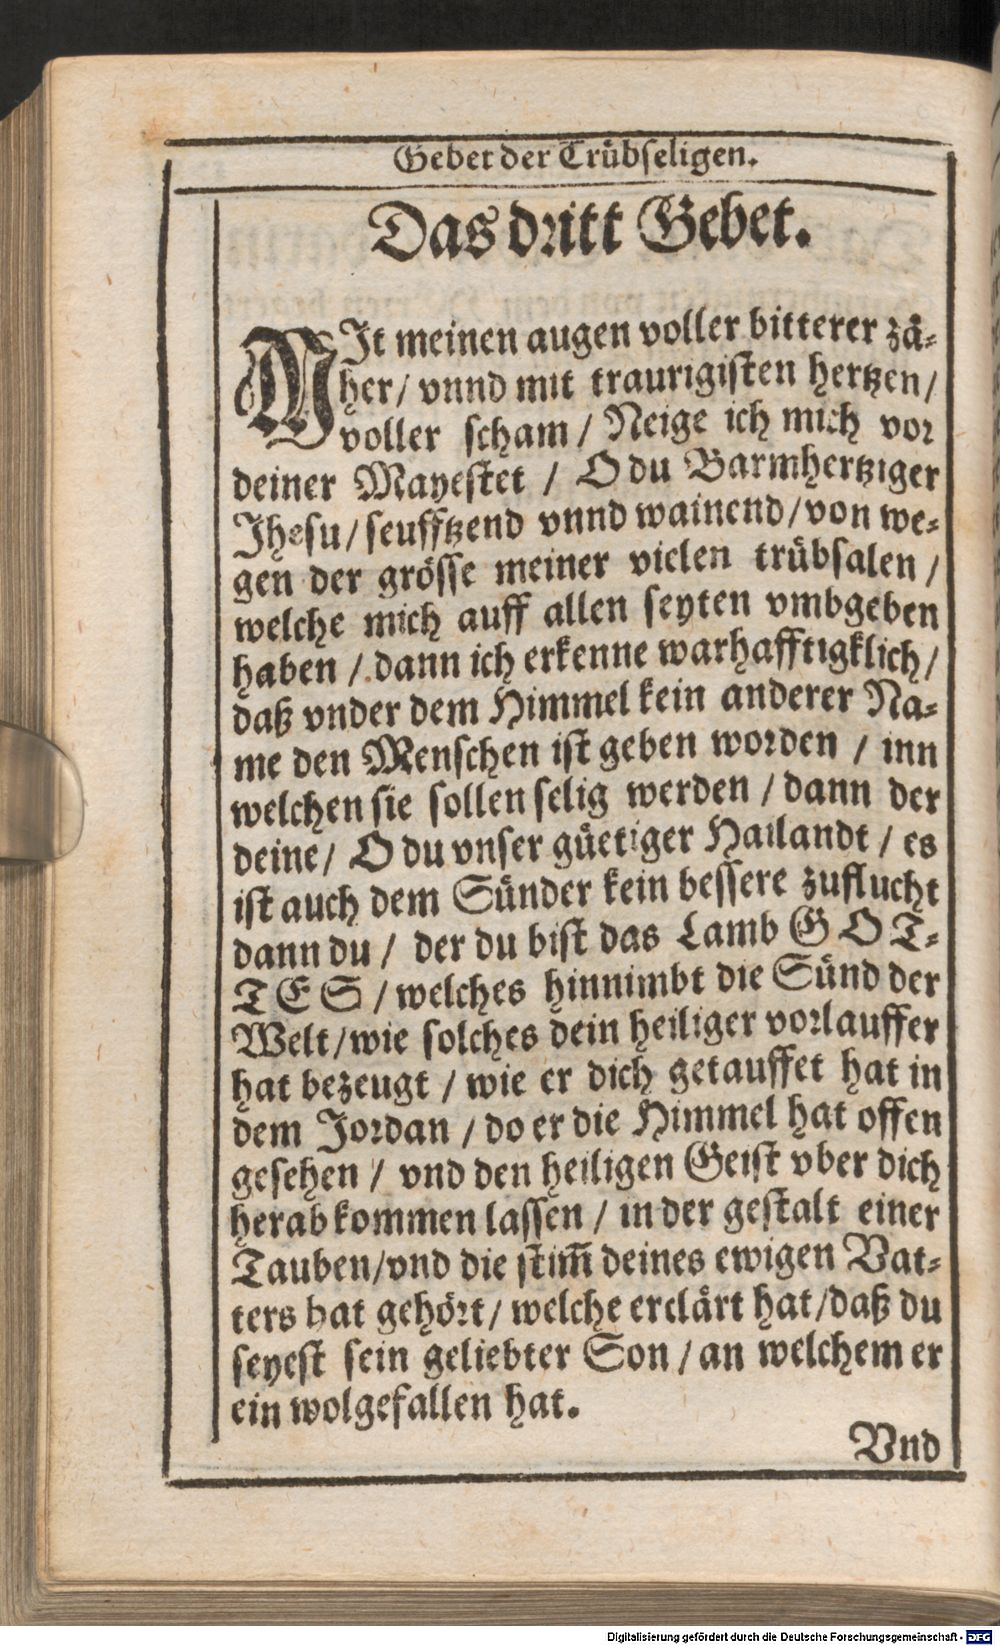 Gebet der Trübseligen.
Das dritt Gebet.
MIt meinen augen voller bitterer zä-
her / vnnd mit traurigisten hertzen /
voller scham / Neige ich mich vor
deiner Mayestet / O du Barmhertziger
Jhesu / seufftzend vnnd wainend / von we-
gen der grösse meiner vielen trübsalen /
welche mich auff allen seyten vmbgeben
haben / dann ich erkenne warhafftigklich /
daß vnder dem Himmel kein anderer Na-
me den Menschen ist geben worden / inn
welchen sie sollen selig werden / dann der
deine / O du vnser güetiger Hailandt / es
ist auch dem Sünder kein bessere zuflucht
dann du / der du bist das Lamb GOT-
TES / welches hinnimbt die Sünd der
Welt / wie solches dein heiliger vorlauffer
hat bezeugt / wie er dich getauffet hat in
dem Jordan / do er die Himmel hat offen
gesehen / vnd den heiligen Geist vber dich
herab kommen lassen / in der gestalt einer
Tauben / vnd die stim̄ deines ewigen Vat-
ters hat gehört / welche erclärt hat / daß du
seyest sein geliebter Son / an welchem er
ein wolgefallen hat.
Vnd
Digitalisierung gefördert durch die Deutsche Forschungsgemeinschaft - DFG